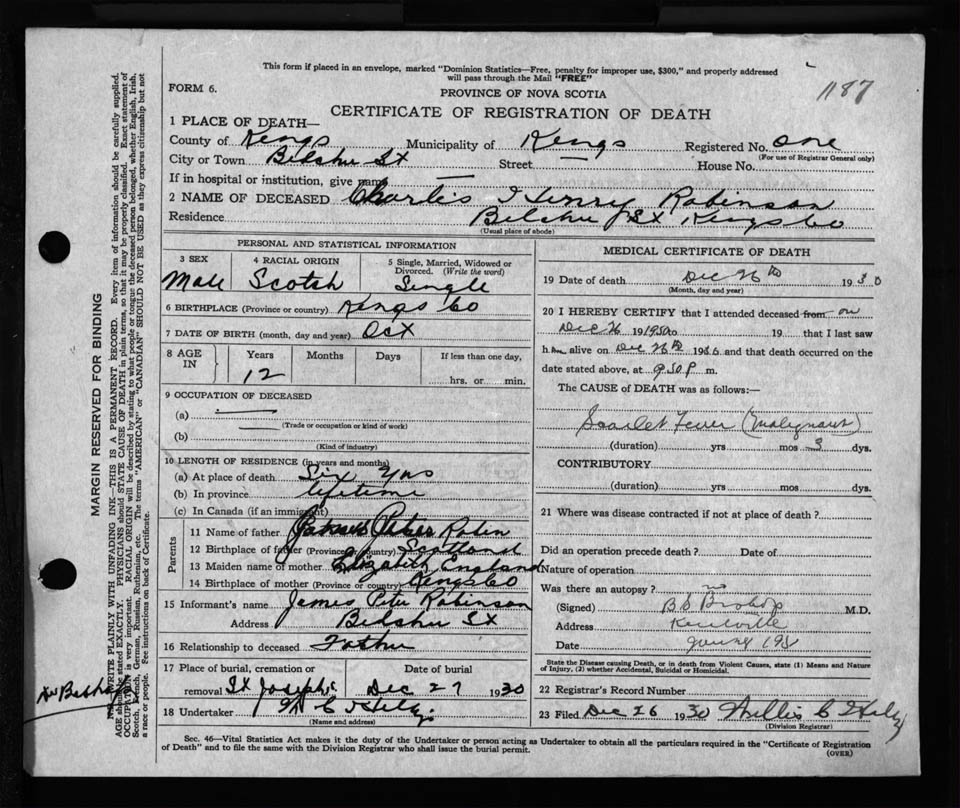 This form if placed in an envelope, marked "Dominion Statistics—Free, penalty for improper use, $300," and properly addressed
will pass through the Mail "FREE"
FORM 6.
PROVINCE OF NOVA SCOTIA
1187
CERTIFICATE OF REGISTRATION OF DEATH
1 PLACE OF DEATH—
County of Kings Municipality of Kings Registered No. one
(For use of Registrar General only)
City or Town Belshu St Street — House No.
If in hospital or institution, give name —
2 NAME OF DECEASED Charles Henry Robinson
Residence Belshu St Kings Co
(Usual place of abode)
PERSONAL AND STATISTICAL INFORMATION
3 SEX
Male
4 RACIAL ORIGIN
Scotch
5 Single, Married, Widowed or
Divorced. (Write the word)
Single
6 BIRTHPLACE (Province or country) Kings Co
7 DATE OF BIRTH (month, day and year) Oct
8 AGE IN
Years Months Days If less than one day,
12
hrs. or min.
9 OCCUPATION OF DECEASED
(a) —
(Trade or occupation or kind of work)
(b) —
(Kind of industry)
10 LENGTH OF RESIDENCE (in years and months)
(a) At place of death Six Yrs
(b) In province lifetime
(c) In Canada (if an immigrant)
Parents
11 Name of father James Peter Robin
12 Birthplace of father (Province or country) Scotland
13 Maiden name of mother Elizabeth England
14 Birthplace of mother (Province or country) Kings Co
15 Informant's name James Peter Robinson
Address Belshu St
16 Relationship to deceased Father
17 Place of burial, cremation or Date of burial
removal St Josephs Dec 27 1930
18 Undertaker
(Name and address)
MEDICAL CERTIFICATE OF DEATH
19 Date of death Dec 26th 1930
(Month, day and year)
20 I HEREBY CERTIFY that I attended deceased from on
Dec 26 1930 to 19 that I last saw
him alive on Dec 26th 1930 and that death occurred on the
date stated above, at 9.50 P m.
The CAUSE of DEATH was as follows:—
Scarlet Fever (Malignant)
(duration) yrs mos 3 dys.
CONTRIBUTORY
(duration) yrs mos dys.
21 Where was disease contracted if not at place of death?
Did an operation precede death? Date of
Nature of operation
Was there an autopsy? no
(Signed) B S Bishop M.D.
Address Kentville
Date
State the Disease causing Death, or in death from Violent Causes, state (1) Means and Nature
of Injury, (2) whether Accidental, Suicidal or Homicidal.
22 Registrar's Record Number
23 Filed Dec 26 1930 Willis C
(Division Registrar)
Sec. 46—Vital Statistics Act makes it the duty of the Undertaker or person acting as Undertaker to obtain all the particulars required in the "Certificate of Registration
of Death" and to file the same with the Division Registrar who shall issue the burial permit.
(OVER)
MARGIN RESERVED FOR BINDING
WRITE PLAINLY WITH UNFADING INK—THIS IS A PERMANENT RECORD. Every item of information should be carefully supplied.
AGE should be stated EXACTLY. PHYSICIANS should STATE CAUSE OF DEATH in plain terms, so that it may be properly classified. Exact statement of
OCCUPATION is very important. RACIAL ORIGIN will be described by stating to what people or tongue the deceased person belonged, whether English, Irish,
Scotch, French, German, Russian, Ruthenian, etc. The terms "AMERICAN" or "CANADIAN" SHOULD NOT BE USED as they express citizenship but not
a race or people. Fee instructions on back of Certificate.